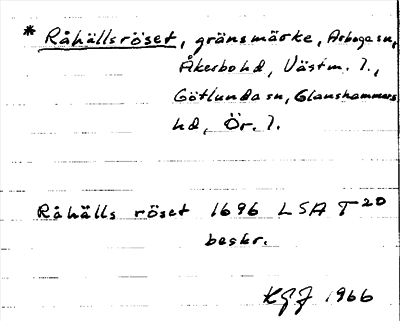 * Råhällsröset, gränsmärke, Arboga sn,
Åkerbo hd, Västm. l.,
Götlunda sn, Glanshammars
hd, Ör. l.
Råhälls röset 1696 LSA T20
beskr.
KGJ 1966